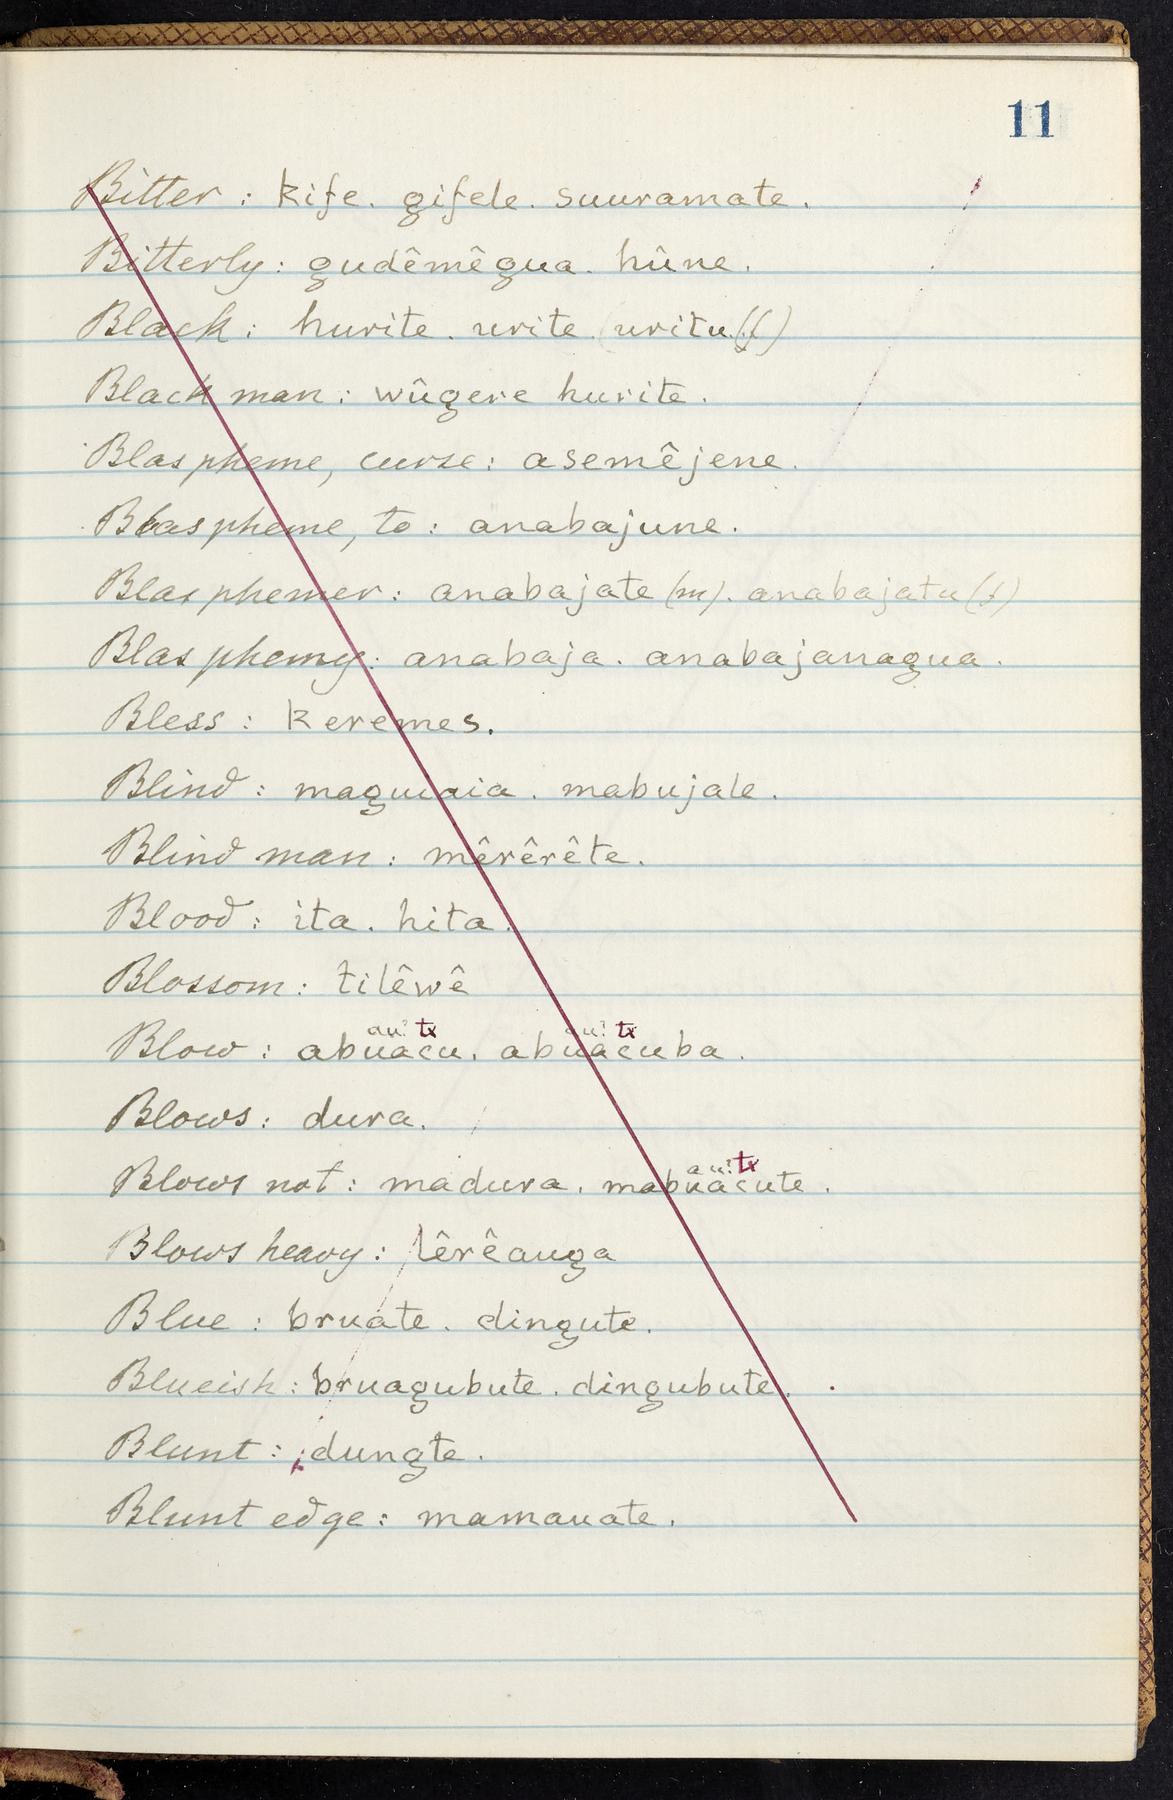 11
Bitter : kife. gifele. suuramate.
Bitterly : gudêmêgua. hûne.
Black : hurite. urite. uritu (f)
Black man : wûgere hurite.
Blaspheme, curse : asemêjene.
Blaspheme, to : anabajune.
Blasphemer : anabajate (m). anabajatu (f)
Blasphemy : anabaja. anabajanagua.
Bless : keremes.
Blind : mabujale.
Blind man : mêrêrête.
Blood : ita. hita.
Blossom : tilêwê
au? tx au? tx
Blow : abuacu. abuacuba.
Blows : dura.
au? tx
Blows not : madura. mabuacute.
Blows heavy : lêrêauga
Blue : bruate. dingute.
Blueish : bruagubute. dingubute.
Blunt : dungte.
Blunt edge : mamauate.